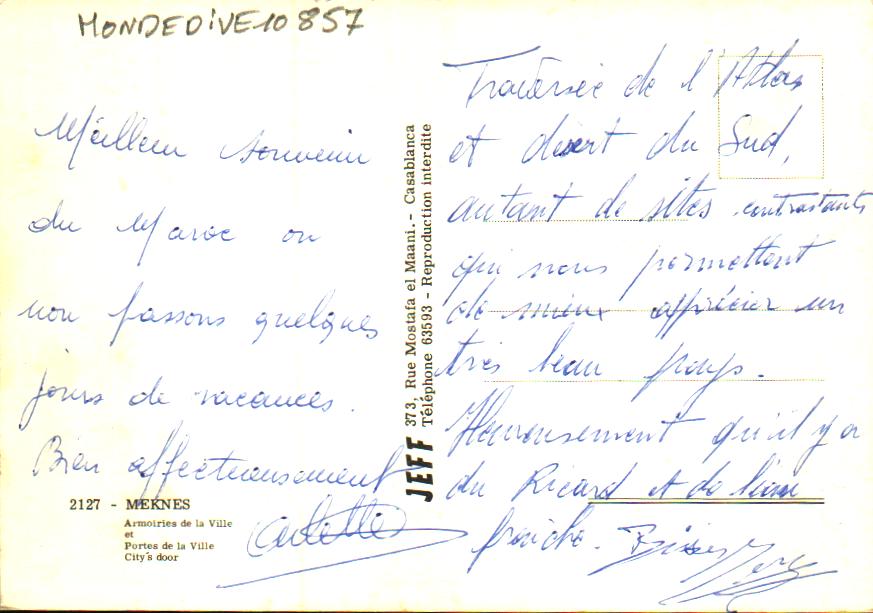 MONDEDIVE10857
Meilleur souvenir
du Maroc ou
nou passons quelques
jours de vacances.
Bien affectueusement
Arlette
2127 - MEKNES
Armoiries de la Ville
et
Portes de la Ville
City's door
JEFF 373, Rue Mostafa el Maani. - Casablanca
Téléphone 63593 - Reproduction interdite
Traversée de l'Atlas
et désert du Sud,
autant de sites contrastants
qui nous permettent
de mieux apprécier un
très beau pays.
Heureusement qu'il y a
du Ricard et de l'eau
fraiche. Bises